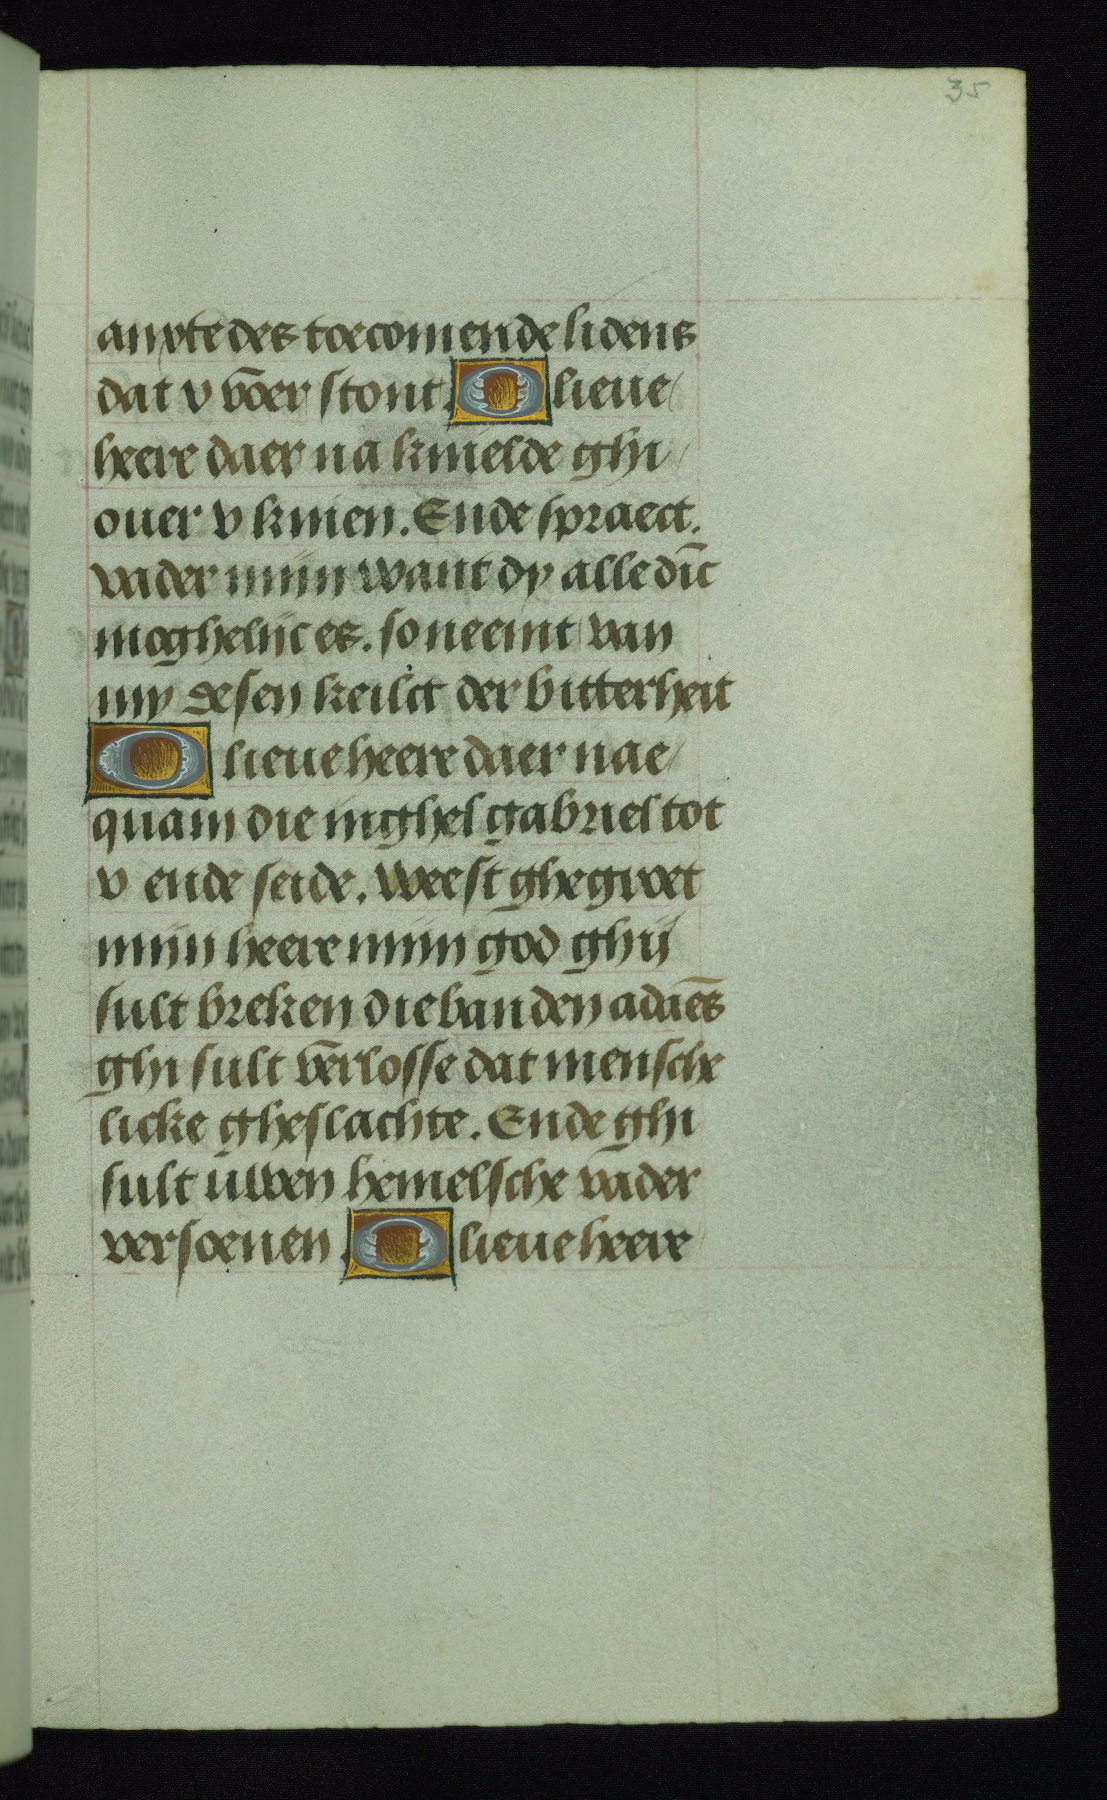 35
anxte des toecomende lidens
dat v võer stont. O lieue
heere daer na knielde ghi
ouer v knien. Ende spraect.
vader mijn want dy alle dĩc
moghelijc es. so neemt van
my desen keilct der bitterheit
O lieue heere daer nae
quam die inghel gabriel tot
v ende seide. Weest ghegroet
mijn heere mijn god ghij
sult breken die banden adaẽs
ghi sult vẽrlosse dat mensche
licke gheslachte. Ende ghi
sult uwen hemelsche vader
versoenen. O lieue heere